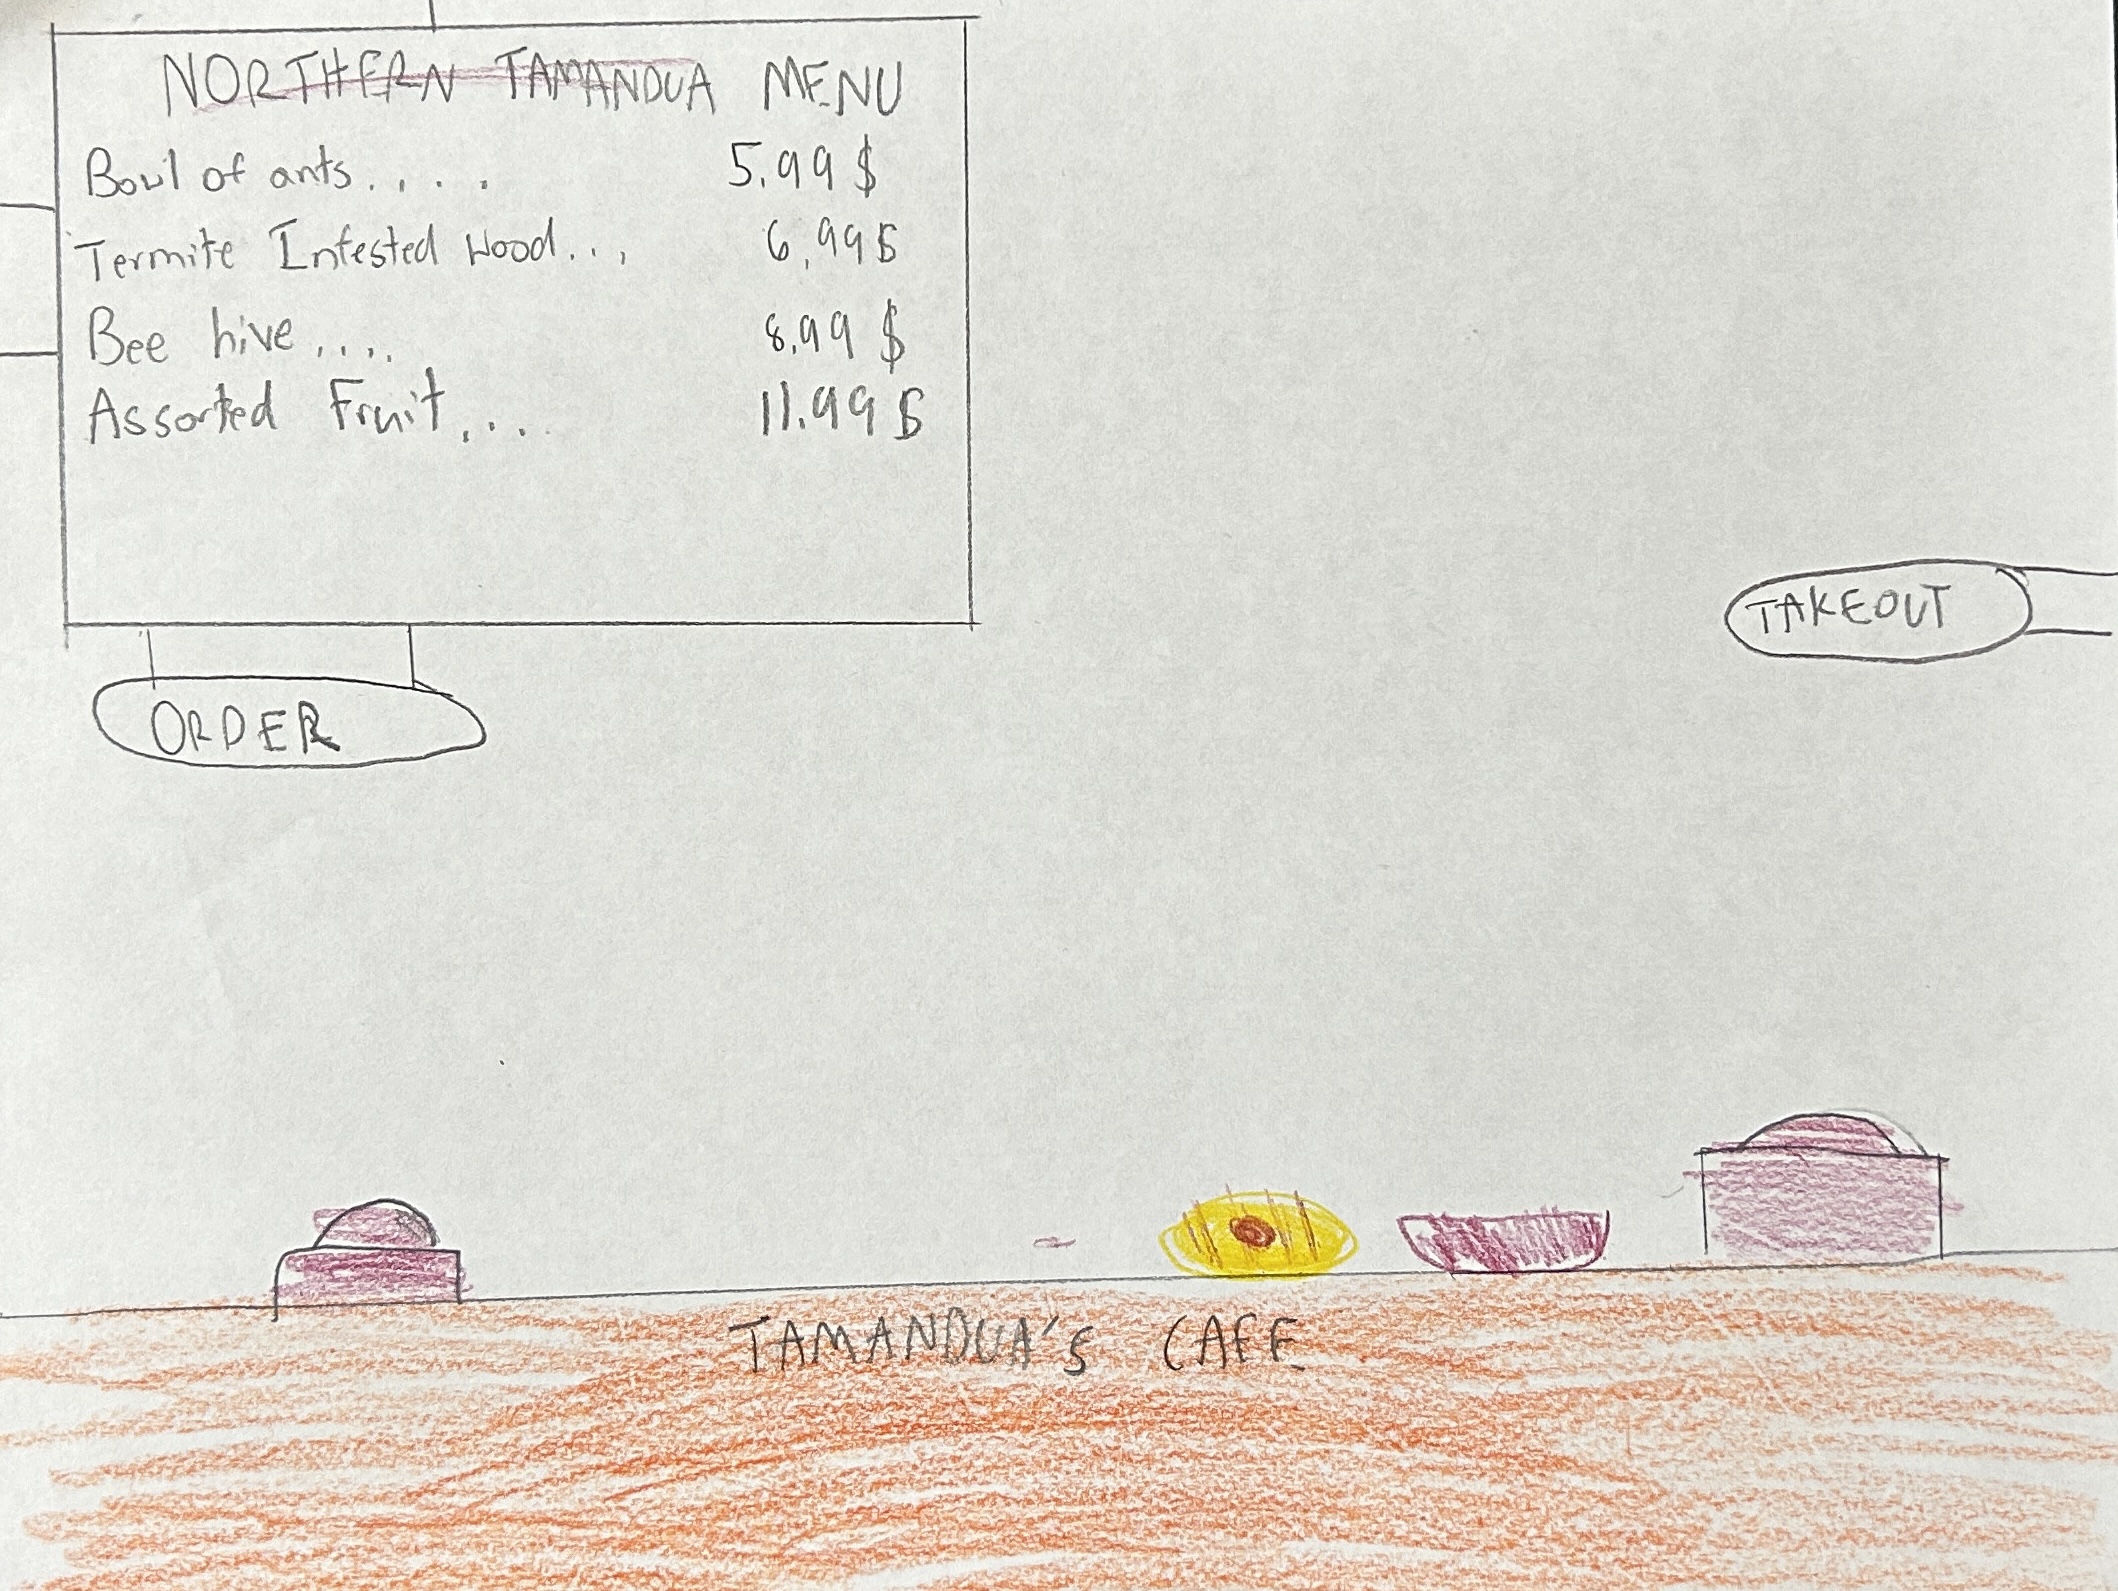 NORTHERN TAMANDUA MENU
Bowl of ants.... 5.99$
Termite Infested Wood... 6.99$
Bee hive.... 8.99$
Assorted Fruit.... 11.99$
ORDER
TAKEOUT
TAMANDUA's CAFE